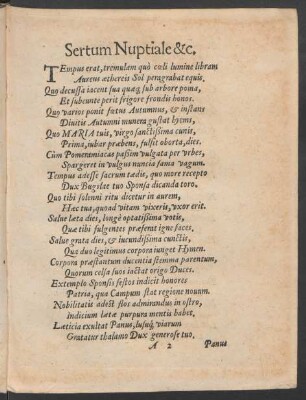 Sertum Nuptiale &c.
TEmpus erat, tremulem quò cœli lumine libram
Aureus æthereis Sol peragrabat equis,
Quo decussa iacent sua quæq; sub arbore poma,
Et subeunte perit frigore frondis honos.
Quo varios ponit fœtus Autumnus, & instans
Divitis Autumni munera gustat hyems,
Quo MARIA tuis, virgo sanctissima cunis,
Prima, iubar præbens, fulsit oborta, dies.
Cùm Pomeraniacas passim vulgata per vrbes,
Spargeret in vulgus nuncia fama vagum.
Tempus adesse sacrum tædis, quo more recepto
Dux Bugslae tuo Sponsa dicanda toro.
Quo tibi solenni ritu dicetur in aurem,
Hæc tua, quoad vitam vixeris, vxor erit.
Salve læta dies, longè optatissima votis,
Quæ tibi fulgentes præfert igne faces,
Salve grata dies, & iucundissima cunctis,
Qua duo legitimus corpora iunget Hymen.
Corpora præstantum ducentia stemma parentum,
Quorum celsa suos iactat origo Duces.
Extemplo Sponsis festos indicit honores
Patria, quæ Campum stat regione nouum.
Nobilitatis adest flos admirandus in ostro,
Indicium lætæ purpura mentis habet,
Læticia exultat Panus, lusuq́; viarum
Gratatur thalamo Dux generose tuo,
A 2 Panus